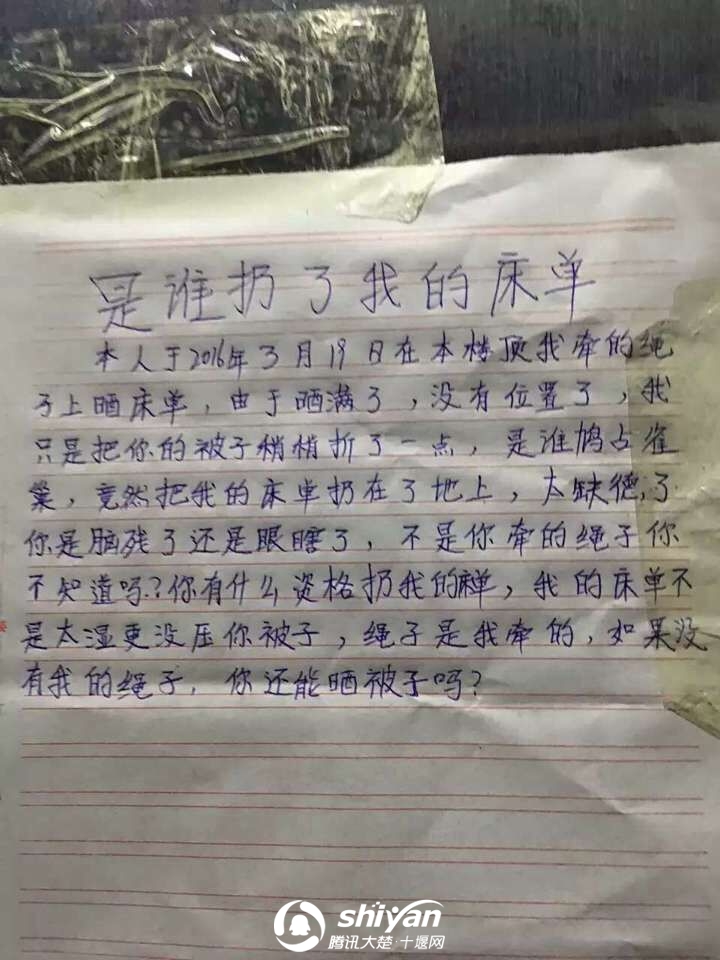 是谁扔了我的床单
本人于2016年3月19日在本楼顶我牵的绳
子上晒床单,由于晒满了,没有位置了,我
只是把你的被子稍梢折了一点,是谁鸠占雀
巢,竟然把我的床单扔在了地上,太缺德了
你是脑残了还是眼瞎了,不是你牵的绳子你
不知道吗?你有什么资格扔我的单,我的床单不
是太湿更没压你被子,绳子是我牵的,如果没
有我的绳子,你还能晒被子吗?
shiyan
腾讯大楚·十堰网